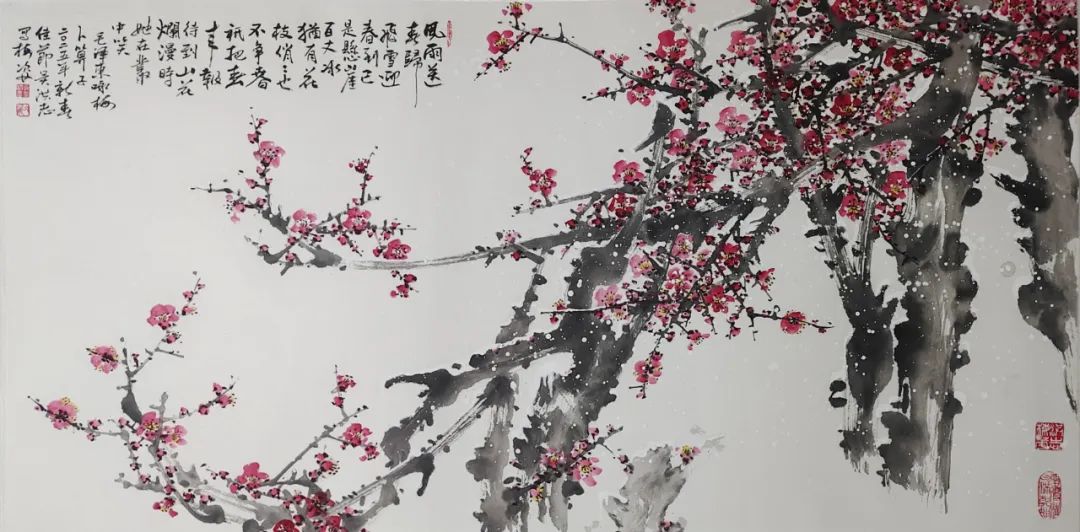 風雨送
春歸
飛雪迎
春到已
是懸崖
百丈冰
猶有花
枝俏〻也
不争春
祇把春
来報
待到山花
爛漫時
她在叢
中笑
毛澤東咏梅
卜算子
二〇二五年新春
佳節吴洪志
写梅